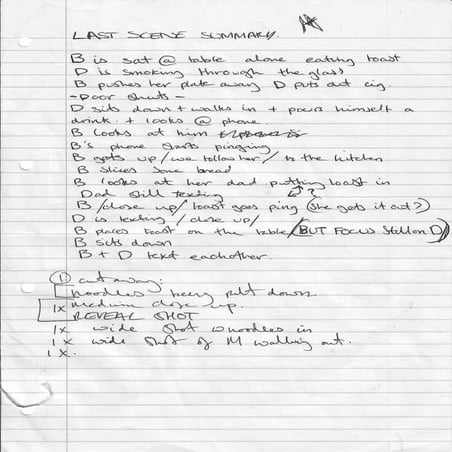 LAST SCENE SUMMARY
B is sat @ table alone eating toast
D is smoking through the glass
B pushes her plate away D puts out cig.
- Door shuts -
D sits down + walks in + pours himself a
drink. + looks @ phone.
B looks at him
B's phone starts pinging
B gets up / we follow her / to the kitchen
B slices some bread
B looks at her dad putting toast in
Dad still texting ?
B / close up / toast goes ping (she gets it out?)
D is texting / close up /
B places toast on the table (BUT FOCUS still on D)
B sits down
B + D text eachother.
① cut away.
noodles being put down
1x medium close up.
REVEAL SHOT
1x wide shot noodles in
1x wide shot of M walking out.
1x.